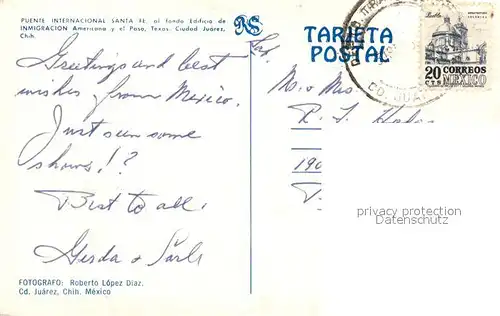 PUENTE INTERNACIONAL SANTA FE: al fondo Edificio de
INMIGRACION Americana y el Paso, Texas. Ciudad Juárez,
Chih.
Greetings and best
wishes from Mexico.
Just seen some
shows!?
Best to all.
Gerda +
FOTOGRAFO: Roberto López Díaz.
Cd. Juárez, Chih. México
TARJETA
POSTAL
CD. JUA
20 CORREOS
CTS MEXICO
Mr. & Mrs.
R. J.
190
privacy protection
Datenschutz